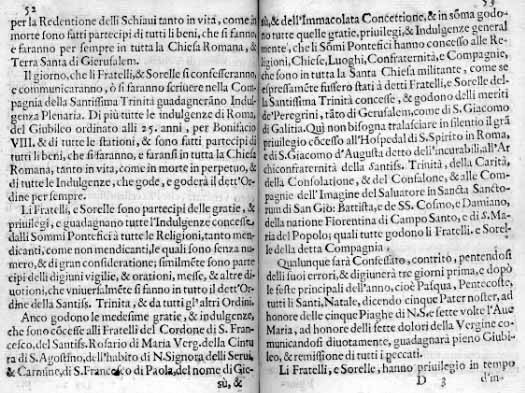 52
per la Redentione delli Schiaui tanto in vita, come in
morte sono fatti partecipi di tutti li beni, che si fanno,
e faranno per sempre in tutta la Chiesa Romana, &
Terra Santa di Gierusalem.
Il giorno, che li Fratelli, & Sorelle si confesseranno,
e communicaranno, ò si faranno scriuere nella Com-
pagnia della Santissima Trinità guadagneranno Indul-
genza Plenaria. Di più tutte le indulgenze di Roma,
del Giubileo ordinato alli 25. anni, per Bonifacio
VIII. & di tutte le stationi, & sono fatti partecipi di
tutti li beni, che si faranno, e faransi in tutta la Chiesa
Romana, tanto in vita, come in morte in perpetuo, &
di tutte le Indulgenze, che gode, e goderà il dett'Or-
dine per sempre.
Li Fratelli, e Sorelle sono partecipi delle gratie, &
priuilegi, e guadagnano tutte l'Indulgenze concesse
dalli Sommi Pontefici à tutte le Religioni, tanto men-
dicanti, come non mendicanti, le quali sono senza nu-
mero, & di gran consideratione; similmẽte sono parte
cipi delli digiuni vigilie, & orationi, messe, & altre di-
uotioni, che vniuersalmẽte si fanno in tutto il dett'Or-
dine della Santiss. Trinita, & da tutti gl'altri Ordini.
Anco godono le medesime gratie, & indulgenze,
che sono cõcesse alli Fratelli del Cordone di S. Fran-
cesco, del Santiss. Rosario di Maria Verg. della Cintu
ra di S. Agostino, dell'habito di N. Signora delli Serui,
& Carmine, di S. Francesco di Paola, del nome di Gie-
sù, &
53
sù, & dell'Immacolata Concettione, & in sõma godo-
no tutte quelle gratie, priuilegi, & Indulgenze general
mente, che li Sõmi Pontefici hanno concesso alle Re-
ligioni, Chiese, Luoghi, Confraternità, e Compagnie,
che sono in tutta la Santa Chiesa militante, come se
espressamẽte fussero stati à detti Fratelli, e Sorelle del-
la Santissima Trinità concesse, & godono delli meriti
de'Peregrini, tãto di Gerusalem, come di S. Giacomo
di Galitia. Quì non bisogna tralasciare in silentio il grã
priuilegio cõcesso all'Hospedal di S. Spirito in Roma,
e di S. Giacomo d'Augusta detto dell'incurabili, all'Ar
chiconfraternità della Santiss. Trinità, della Carità,
della Consolatione, & del Confalone, & alle Compa-
gnie dell'Imagine del Saluatore in Sancta Sancto-
rum di San Gio: Battista, e de SS. Cosmo, e Damiano,
della natione Fiorentina di Campo Santo, e di S. Ma-
ria del Popolo; quali tutte godono li Fratelli, e Sorel-
le della detta Compagnia.
Qualunque sarà Confessato, contrito, pentendosi
delli suoi errori, & digiunerà tre giorni prima, e dopò
le feste principali dell'anno, cioè Pasqua, Pentecoste,
tutti li Santi, Natale, dicendo cinque Pater noster, ad
honore delle cinque Piaghe di N.S. e sette volte l'Aue
Maria, ad honore delli sette dolori della Vergine co-
municandosi diuotamente, guadagnarà pieno Giubi-
leo, & remissione di tutti i peccati.
Li Fratelli, e Sorelle, hanno priuilegio in tempo
D 3 d'in-